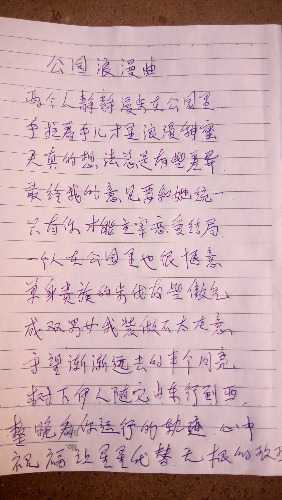 公园浪漫曲
两个人静静漫步在公园里
手拉着手儿才是浪漫甜蜜
天真的想法总是有些差异
最终我的意见要和她统一
只有你才能主宰恋爱结局
一个人在公园里也很惬意
单身贵族的步伐有些傲气
成双男女我装做不太在意
守望渐渐远去的半个月亮
树下伊人随它由东行到西
整晚看你运行的轨迹 心中
祝福 让星星代替 无